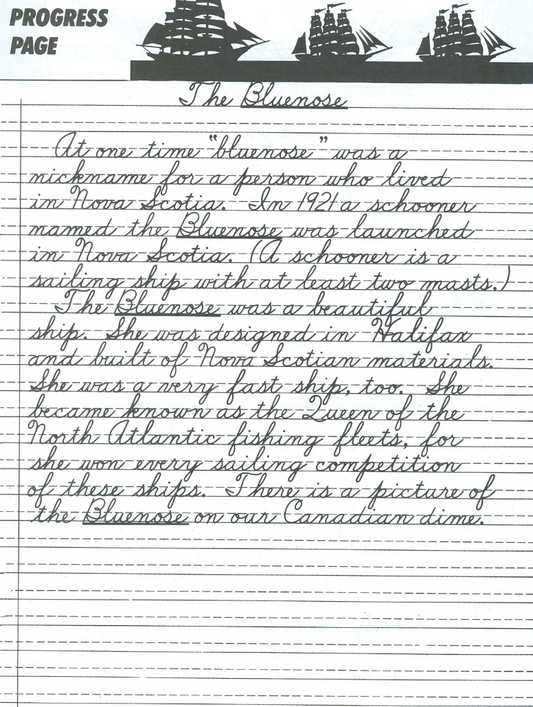 PROGRESS
PAGE
The Bluenose
At one time "bluenose" was a
nickname for a person who lived
in Nova Scotia. In 1921 a schooner
named the Bluenose was launched
in Nova Scotia. (A schooner is a
sailing ship with at least two masts.)
The Bluenose was a beautiful
ship. She was designed in Halifax
and built of Nova Scotian materials.
She was a very fast ship, too. She
became known as the Queen of the
North Atlantic fishing fleets, for
she won every sailing competition
of these ships. There is a picture of
the Bluenose on our Canadian dime.